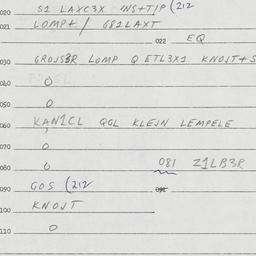 020 S1 LAXC3X INS+T/P (212
021 LOMP+/ G81LAXT
022 EQ
030 GROJS3R LOMP Q ETL3X1 KNOJT+S
040 0
050 0
060 KAN1CL QCL KLEJN LEMPELE
070 0
080 0 081 Z1LB3R
090 GOS (212
100 KNOJT
110 0